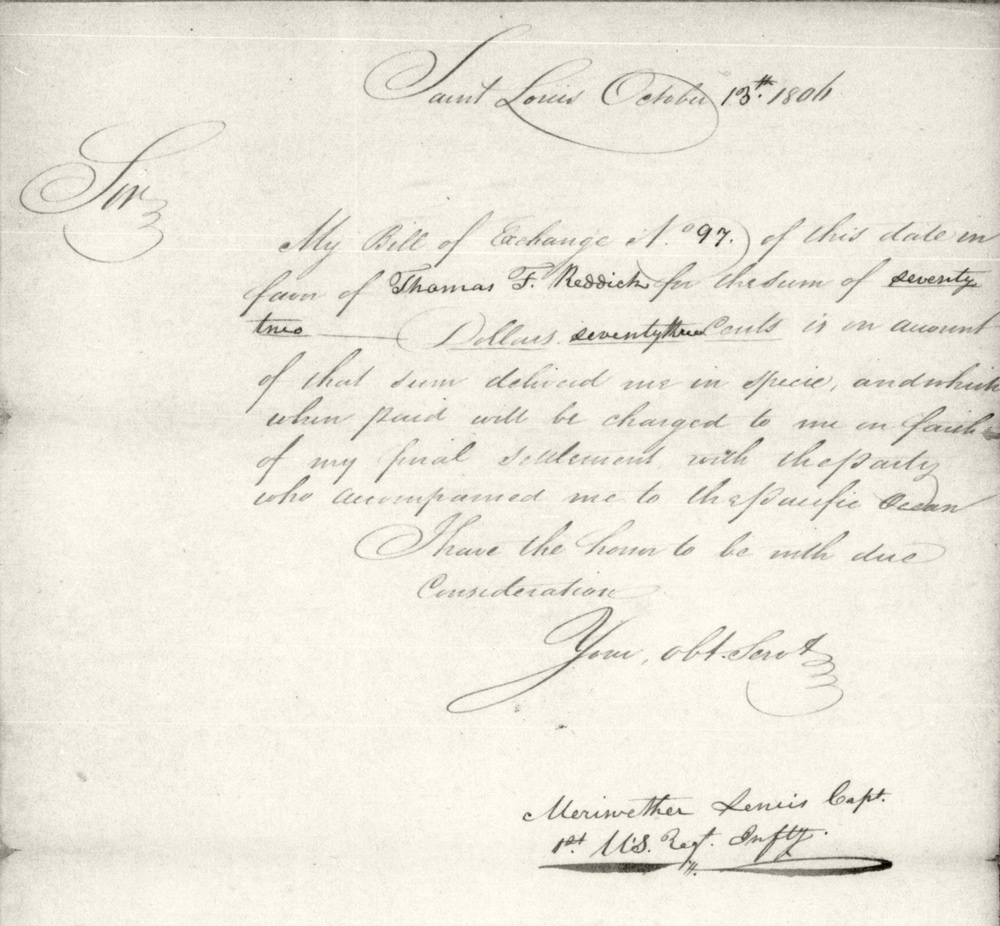 Saint Louis October 13th. 1806
Sir,
My Bill of Exchange N.o 97. of this date in
favor of Thomas F. Reddick for the sum of seventy
two Dollars seventy three Cents is on account
of that sum delivered me in specie, and which
when paid will be charged to me on faith
of my final settlement with the party
who accompanied me to the pacific Ocean
I have the honor to be with due
Consideration
Your, obt. Servt
Meriwether Lewis Capt.
1st. U'S. Regt. Infty.